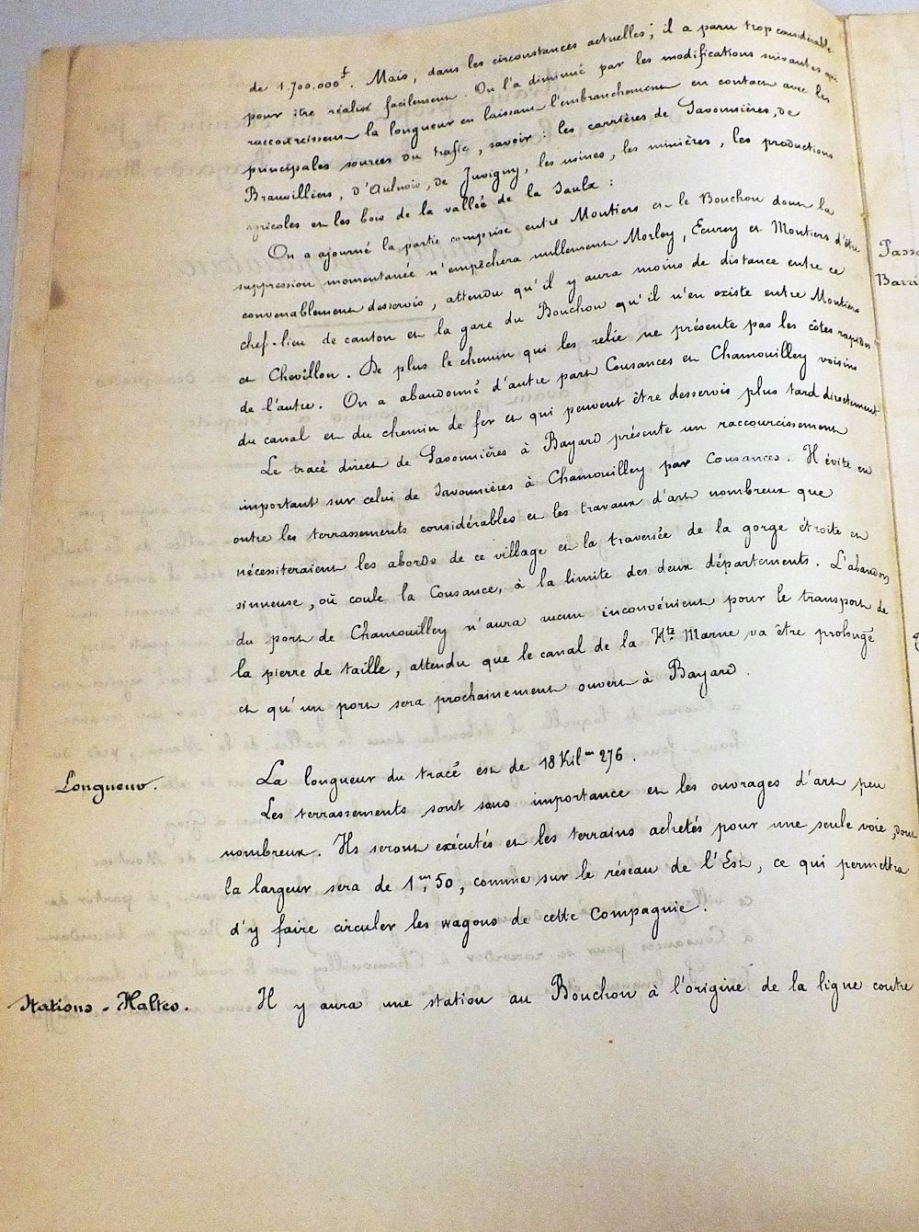 de 1.700.000f. Mais, dans les circonstances actuelles ; il a paru trop considérable
pour être réalisé facilement. On l'a diminué par les modifications suivantes qui
raccourcissent la longueur en laissant l'embranchement en contact avec les
principales sources du trafic, savoir : les carrières de Savonnières, de
Brauvilliers, d'Aulnois, de Juvigny, les usines, les minières, les productions
agricoles et les bois de la vallée de la Saulx :
On a ajourné la partie comprise entre Montiers et le Bouchon dont la
suppression momentanée n'empêchera nullement Morley, Ecurey et Montiers d'être
convenablement desservis, attendu qu'il y aura moins de distance entre ce
chef-lieu de canton et la gare du Bouchon qu'il n'en existe entre Montiers
et Chevillon. De plus le chemin qui les relie ne présente pas les côtes rapides
de l'autre. On a abandonné d'autre part Cousances et Chamouilley voisins
du canal et du chemin de fer et qui peuvent être desservis plus tard directement
Le tracé direct de Savonnières à Bayard présente un raccourcissement
important sur celui de Savonnières à Chamouilley par Cousances. Il évite en
outre les terrassements considérables et les travaux d'art nombreux que
nécessiteraient les abords de ce village et la traversée de la gorge étroite et
sinueuse, où coule la Cousance, à la limite des deux départements. L'abandon
du port de Chamouilley n'aura aucun inconvénient pour le transport de
la pierre de taille, attendu que le canal de la Hte Marne va être prolongé
et qu'un port sera prochainement ouvert à Bayard.
Longueur. La longueur du tracé est de 18 Kilm 276.
Les terrassements sont sans importance et les ouvrages d'art peu
nombreux. Ils seront exécutés et les terrains achetés pour une seule voie, dont
la largeur sera de 1m,50, comme sur le réseau de l'Est, ce qui permettra
d'y faire circuler les wagons de cette Compagnie.
Stations - Haltes. Il y aura une station au Bouchon à l'origine de la ligne contre